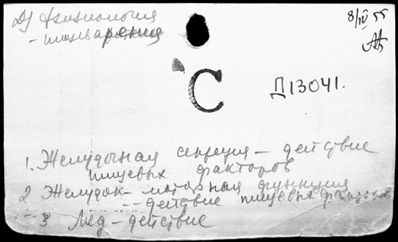 Dj Физиология
8/IV 55
- пищеварения
С
Д13041.
1. Желудочная секреция - действие
пищевых факторов
2 Желудок - моторная функция
-- действие пищевых факторов
3 Мёд - действие